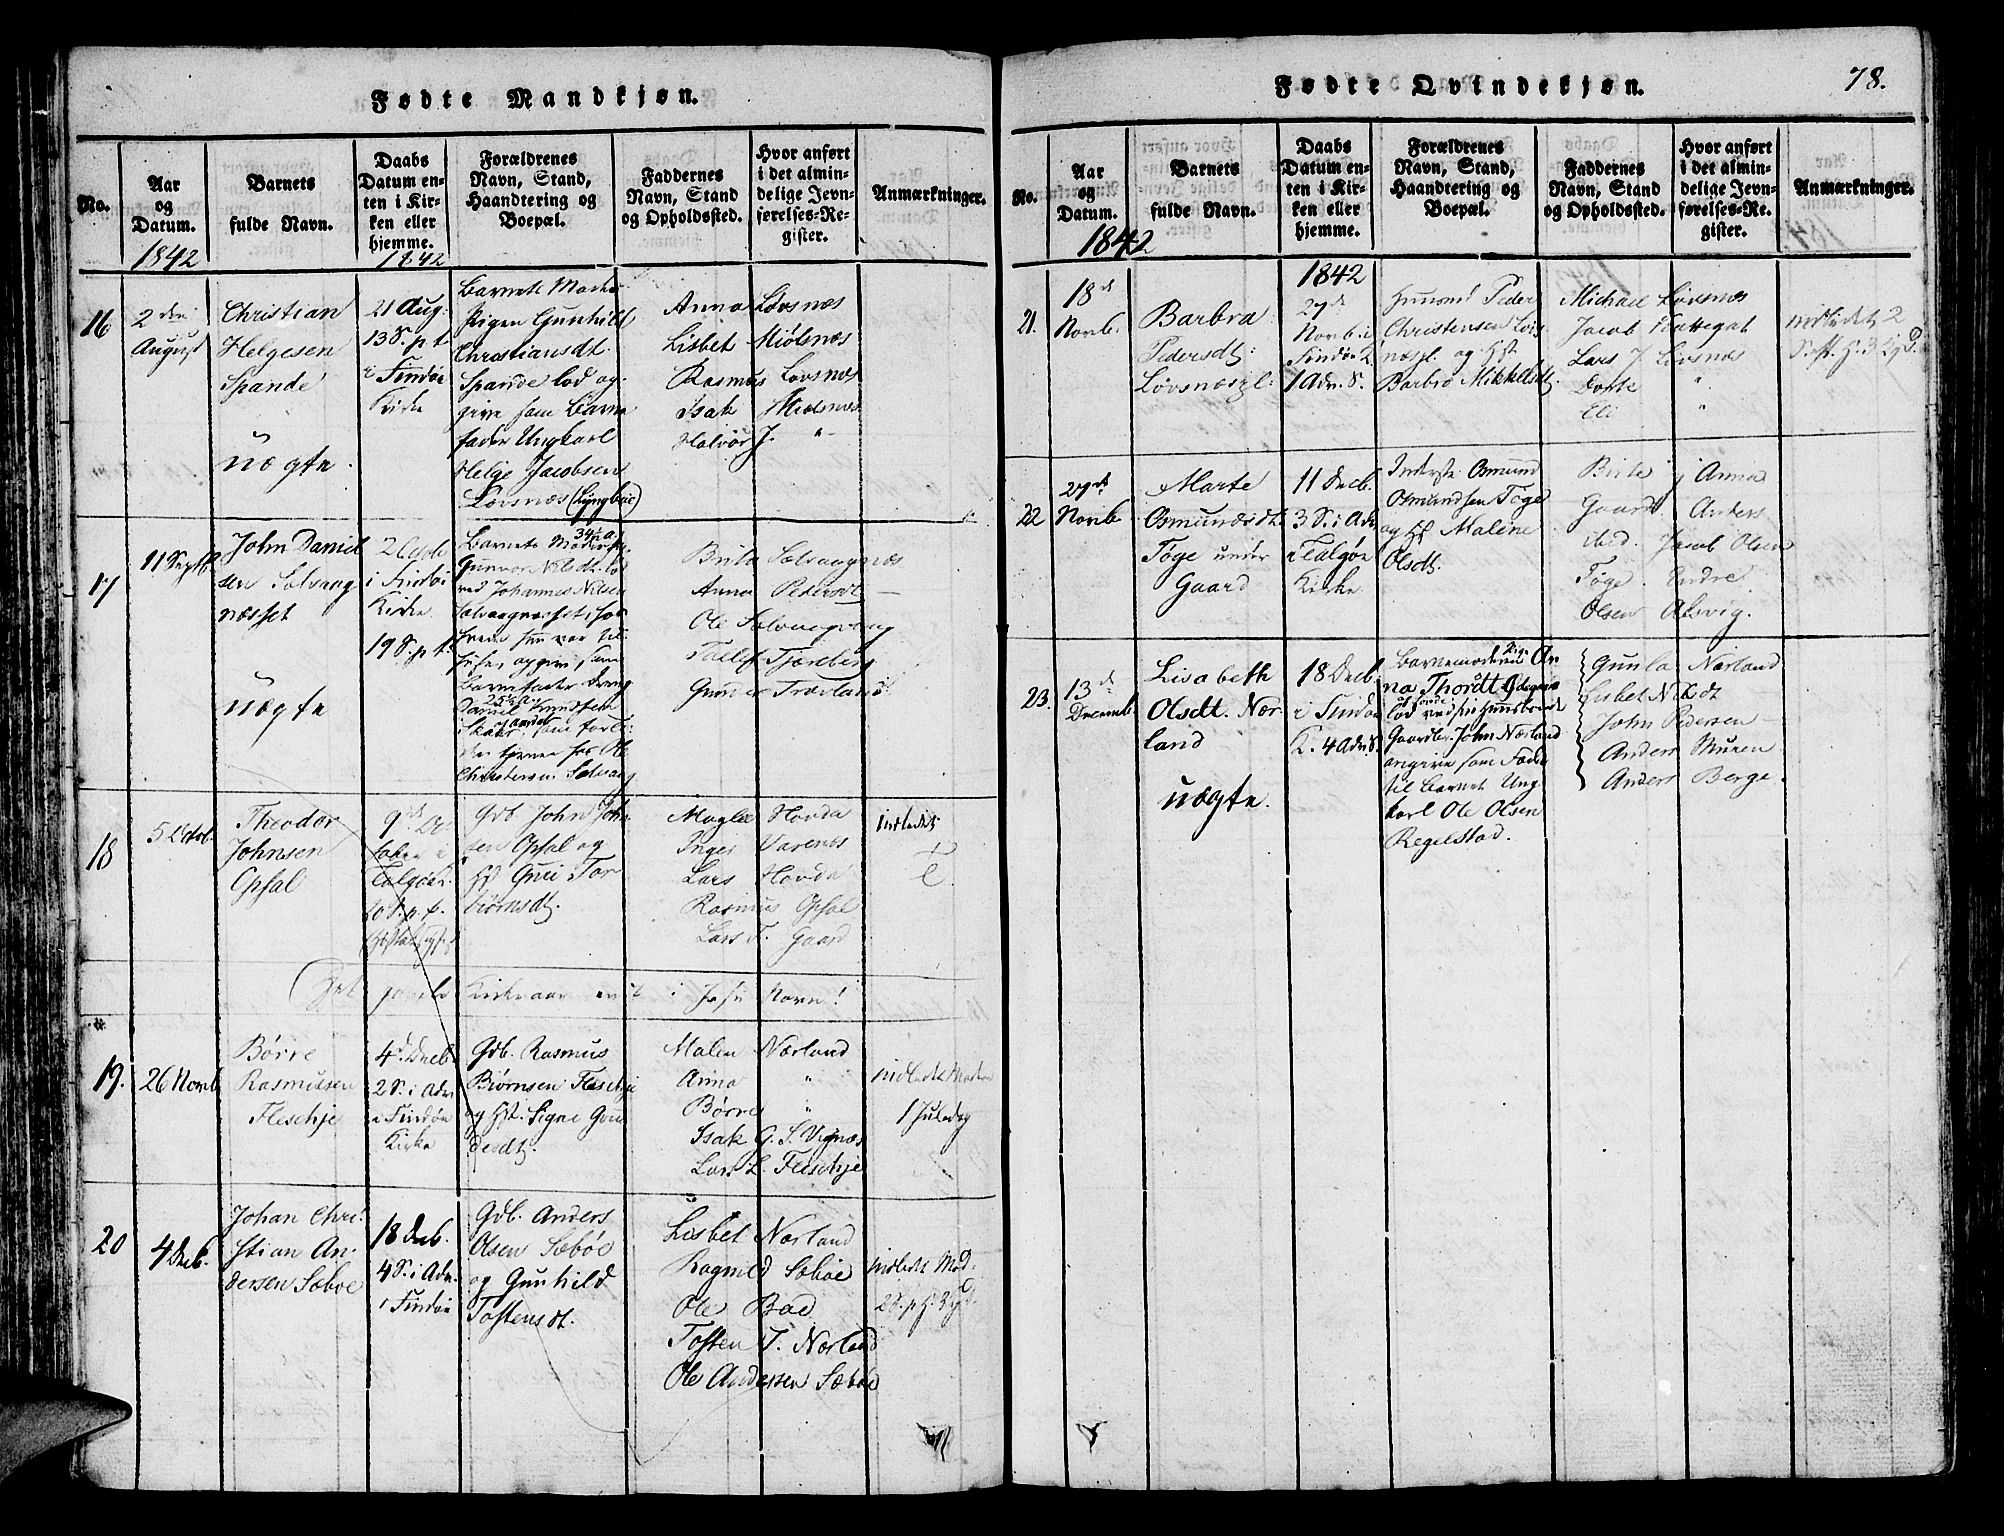 Fødte Mandkjøn.
No.
Aar
og
Datum.
1842
Barnets
fulde Navn.
Daabs
Datum en-
ten i Kir-
ken eller
hjemme.
1842
Forældrenes
Navn, Stand,
Haandtering og
Boepæl.
Faddernes
Navn, Stand
og Opholdsted.
Hvor anført
i det almin-
delige Jevn-
førelses-Re-
gister.
Anmærkninger.
16
2den
August
Christian
Helgesen
Spande
uægte.
21 Aug:
13 S. p. t.
i Findøe
Kirke
Barnets Moder
Pigen Gunhild
Christiansdt.
Spande lod an-
give som Barne
fader Ungkarl
Helge Jacobsen
Løvsnæs (Lyngbær)
Anna Løvsnæs
Lisbet Miølsnæs
Rasmus Løvsnæs
Isak Miølsnæs
Halvor J. "
17
11 Septb
John Daniel
sen Solvaag
næsset
uægte
2 Octb
i Findøe
Kirke
19 S. p. t.
Barnets Moder
Gunvor Nilsdt.
ved Johannes Nilsen
Solvaagnæsset, hos
hvem hun var til
opgive som
Barnefader
Daniel Knudsen
tjener for Ole
Christensen Solvaag
Brita Solvaagnæs
Anna Pedersdt —
Ole Solvaagvaag
Gunder Træeland
18
5 Octob.
Theodor
Johnsen
Opsal
9de Oc
tober i
Talgøe K.
20 S. p. t.
Gdb. John John
sen Opsal og
Hst Guri Tor
biørnsdt.
Maglee Hovda
Inger Varenes
Lars Hovda
Rasmus Opsal
Lars T. Gaard
Indledet
Kirkeaar
i Jesu Navn!
19.
26 Novb
Børre
Rasmusen
Fleschje
4d. Decb
2 S. i Adv
i Findøe
Kirke
Gdb. Rasmus
Biørnsen Fleschje
og Hst. Signe Gun
dersdt.
Malen Nærland
Anna "
Børre "
Isak G. S. Vignæs
Lars L. Fleschje
indledet Moder
1 Juledag
20
4 Decb.
Johan Chri
stian An-
dersen Sæbøe
18 Decb.
4 S. i Adv.
i Findøe
Gdb. Anders
Olsen Sæbøe
og Gunhild
Tostensdt.
Lisbet Nærland
Ragnild Sæbøe
Ole Bøe
Tosten T. Nærland
Ole Andersen Sæbøe
indledet Mod.
2 S. p. H. 3 Kgd.
Fødte Qvindekjøn.
78.
No.
Aar
og
Datum.
1842
Barnets
fulde Navn.
Daabs
Datum en-
ten i Kir-
ken eller
hjemme.
1842
Forældrenes
Navn, Stand,
Haandtering og
Boepæl.
Faddernes
Navn, Stand
og Opholdsted.
Hvor anført
i det almin-
delige Jevn-
førelses-Re-
gister.
Anmærkninger.
21.
18d
Novb.
Barbra
Pedersdt:
Løvsnæspl:
27d
Novb. i
Findøe K
1 Adv. S.
Huusmd Peder
Christensen Løvs
næspl. og Hst
Barbro Mikkelsdt.
Michael Løvsnæs
Jacob Kattegat
Lars J. Løvsnæs
Dorte "
Eli "
indledet 2
S. aft. H. 3 Kgd.
22
27d
Novb
Marte
Osmundsdt.
Tøge under
Gaard
11 Decb.
3 S. i Adv
i Talgøe
Kirke
Inderste Osmund
Osmundsen Tøge
og Hst Malene
Olsdt.
Birte j Anna
Gaard Anders
ibid. Jacob Olsen
Tøge. Endre
Olsen Alsvig.
23.
13d
Decemb
Lisabeth
Olsdt. Nær
land
uægte.
18 Decb
i Findøe
K. 4 Adv. S.
Barnemoderen Pige An
na Thordt Ødegaard
lod ved sin Huusbonde
Gaardbr. John Nærland
angive som Fader
til Barnet Ung
karl Ole Olsen
Regelstad.
Gunla Nærland
Lisbet N. dt
John Pedersen —
Anders Muren
Anders Berge.